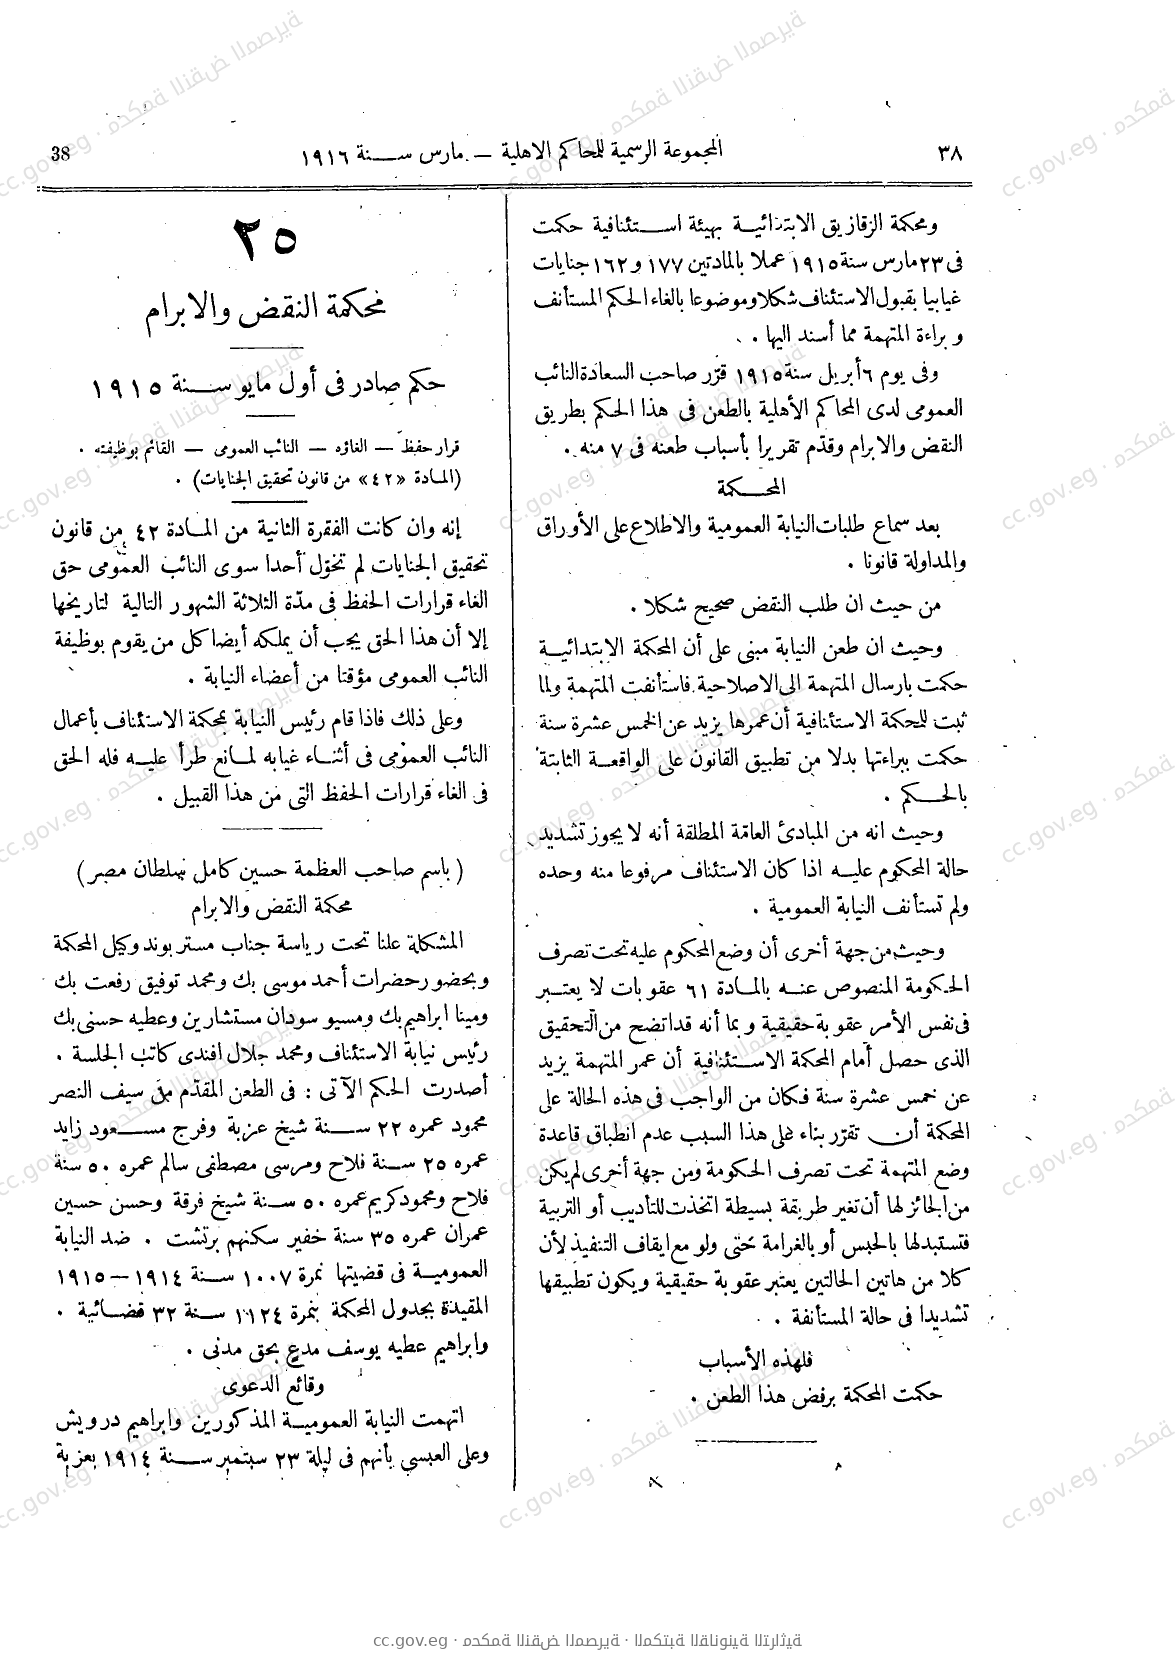 ٣٨
المجموعة الرسمية للمحاكم الاهلية — مارس سنة ١٩١٦
38
ومحكمة الزقازيق الابتدائية بهيئة استئنافية حكمت
فى ٢٣ مارس سنة ١٩١٥ عملا بالمادتين ١٧٧ و ١٦٢ جنايات
غيابيا بقبول الاستئناف شكلا وموضوعا بالغاء الحكم المستأنف
وبراءة المتهمة مما أسند اليها .
وفى يوم ٦ أبريل سنة ١٩١٥ قرّر صاحب السعادة النائب
العمومى لدى المحاكم الأهلية بالطعن فى هذا الحكم بطريق
النقض والابرام وقدّم تقريرا بأسباب طعنه فى ٧ منه .
المحكمة
بعد سماع طلبات النيابة العمومية والاطلاع على الأوراق
والمداولة قانونا .
من حيث ان طلب النقض صحيح شكلا .
وحيث ان طعن النيابة مبنى على أن المحكمة الابتدائية
حكمت بارسال المتهمة الى الاصلاحية فاستأنفت المتهمة ولما
ثبت للمحكمة الاستئنافية أن عمرها يزيد عن الخمس عشرة سنة
حكمت ببراءتها بدلا من تطبيق القانون على الواقعة الثابتة
بالحكم .
وحيث انه من المبادئ العامّة المطلقة أنه لا يجوز تشديد
حالة المحكوم عليه اذا كان الاستئناف مرفوعا منه وحده
ولم تستأنف النيابة العمومية .
وحيث من جهة أخرى أن وضع المحكوم عليه تحت تصرف
الحكومة المنصوص عنه بالمادة ٦١ عقوبات لا يعتبر
فى نفس الأمر عقوبة حقيقية وبما أنه قد اتضح من التحقيق
الذى حصل أمام المحكمة الاستئنافية أن عمر المتهمة يزيد
عن خمس عشرة سنة فكان من الواجب فى هذه الحالة على
المحكمة أن تقرّر بناء على هذا السبب عدم انطباق قاعدة
وضع المتهمة تحت تصرف الحكومة ومن جهة أخرى لم يكن
من الجائز لها أن تغير طريقة بسيطة اتخذت للتأديب أو التربية
فتستبدلها بالحبس أو بالغرامة حتى ولو مع ايقاف التنفيذ لأن
كلا من هاتين الحالتين يعتبر عقوبة حقيقية ويكون تطبيقها
تشديدا فى حالة المستأنفة .
فلهذه الأسباب
حكمت المحكمة برفض هذا الطعن .
٢٥
محكمة النقض والابرام
حكم صادر فى أول مايو سنة ١٩١٥
قرار حفظ — الغاؤه — النائب العمومى — القائم بوظيفته .
(المادة «٤٢» من قانون تحقيق الجنايات) .
إنه وان كانت الفقرة الثانية من المادة ٤٢ من قانون
تحقيق الجنايات لم تخوّل أحدا سوى النائب العمومى حق
الغاء قرارات الحفظ فى مدّة الثلاثة الشهور التالية لتاريخها
إلا أن هذا الحق يجب أن يملكه أيضا كل من يقوم بوظيفة
النائب العمومى مؤقتا من أعضاء النيابة .
وعلى ذلك فاذا قام رئيس النيابة بمحكمة الاستئناف بأعمال
النائب العمومى فى أثناء غيابه لمانع طرأ عليه فله الحق
فى الغاء قرارات الحفظ التى من هذا القبيل .
( باسم صاحب العظمة حسين كامل سلطان مصر )
محكمة النقض والابرام
المشكلة علنا تحت رياسة جناب مستر بوند وكيل المحكمة
وبحضور حضرات أحمد موسى بك ومحمد توفيق رفعت بك
ومينا ابراهيم بك ومسيو سودان مستشارين وعطيه حسنى بك
رئيس نيابة الاستئناف ومحمد جلال افندى كاتب الجلسة .
أصدرت الحكم الآتى : فى الطعن المقدّم من سيف النصر
محمود عمره ٢٢ سنة شيخ عزبة وفرج مسعود زايد
عمره ٢٥ سنة فلاح ومرسى مصطفى سالم عمره ٥٠ سنة
فلاح ومحمود كريم عمره ٥٠ سنة شيخ فرقة وحسن حسين
عمران عمره ٣٥ سنة خفير سكنهم برتشت . ضد النيابة
العمومية فى قضيتها نمرة ١٠٠٧ سنة ١٩١٤ — ١٩١٥
المقيدة بجدول المحكمة بنمرة ١١٢٤ سنة ٣٢ قضائية .
وابراهيم عطيه يوسف مدع بحق مدنى .
وقائع الدعوى
اتهمت النيابة العمومية المذكورين وابراهيم درويش
وعلى العبسي بأنهم فى ليلة ٢٣ سبتمبر سنة ١٩١٤ بعزبة
cc.gov.eg · محكمة النقض المصرية · المكتبة القانونية التراثية